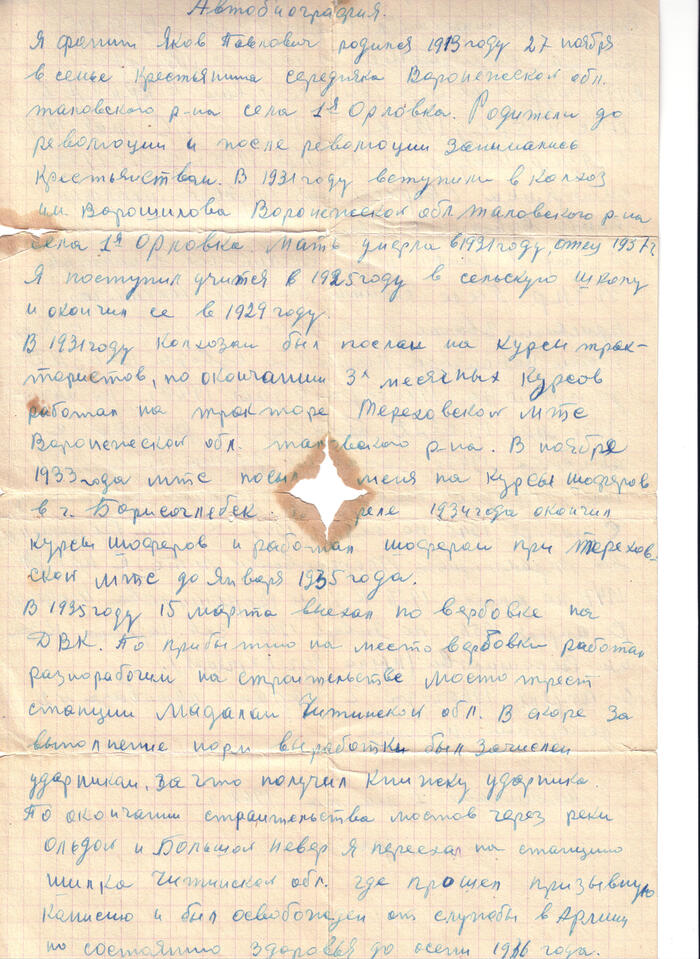 Автобиография.
Я Фатин Яков Павлович родился 1913 году 27 ноября
в семье Крестьянина середняка Воронежской обл.
таловского р-на села 1я Орловка. Родители до
революции и после революции занимались
Крестьянством. В 1931 году вступили в Колхоз
им. Ворошилова Воронежской обл таловского р-на
села 1я Орловка Мать умерла в 1921 году, отец 1937 г
Я поступил учится в 1925 году в сельскую школу
и окончил ее в 1929 году.
В 1931 году Колхозом был послан на курсы трак-
тористов, по окончании 3х месячных Курсов
работал на тракторе Тереховской мтс
Воронежской обл. таловского р-на. В ноябре
1933 года мтс посыл меня на Курсы шоферов
в г. Борисоглебск. реле 1934 года окончил
курсы шоферов и работал шофером при Терехов-
ской мтс до Января 1935 года.
В 1935 году 15 марта выехал по вербовке на
ДВК. По прибытию на место вербовки работал
разнорабочим на строительстве мостотрест
станции Мадалан Читинской обл. В скоре за
выполнение норм выработки был зачислен
ударником, за что получил Книжку ударника.
По окончании страительства мостов через реки
Ольдой и Большой Невер Я переехал на станцию
шилка Читинской обл. где прошел призывную
камисию и был освобожден от службы в Армии
по состоянию здоровья до осени 1936 года.